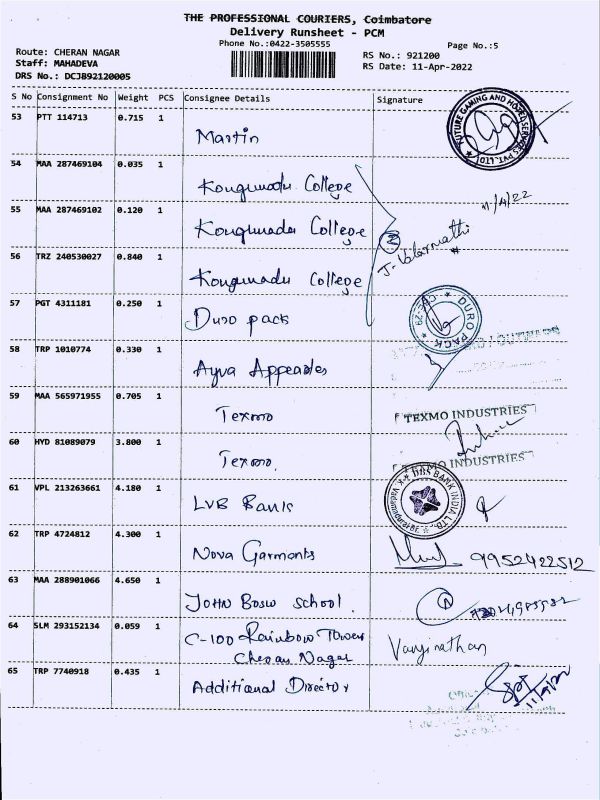 THE PROFESSIONAL COURIERS, Coimbatore
Delivery Runsheet - PCM
Phone No.:0422-3505555
Page No.:5
Route: CHERAN NAGAR
RS No.: 921200
Staff: MAHADEVA
RS Date: 11-Apr-2022
DRS No.: DCJ892120005
S No Consignment No Weight PCS Consignee Details Signature
53 PTT 114713 0.715 1 Martin
FUTURE GAMING AND HOTEL SERVICES PVT. LTD.
54 MAA 287469104 0.035 1 Kongunadu College
11/4/22
55 MAA 287469102 0.120 1 Kongunadu College
56 TRZ 240530027 0.840 1 Kongunadu College
57 PGT 4311181 0.250 1 Duro pack
DURO PACK
58 TRP 1010774 0.330 1
59 MAA 565971955 0.705 1 Texmo
TEXMO INDUSTRIES
60 HYD 81089079 3.800 1 Texmo.
TEXMO INDUSTRIES
61 VPL 213263661 4.180 1 LVB Bank
DBS BANK INDIA LTD.
62 TRP 4724812 4.300 1 Nova Garments 9952422512
63 MAA 288901066 4.650 1 JOHN Bosw school.
64 SLM 293152134 0.059 1 C-100 Rainbow Tower
Cheran Nagar
65 TRP 7740918 0.435 1 Additional Director